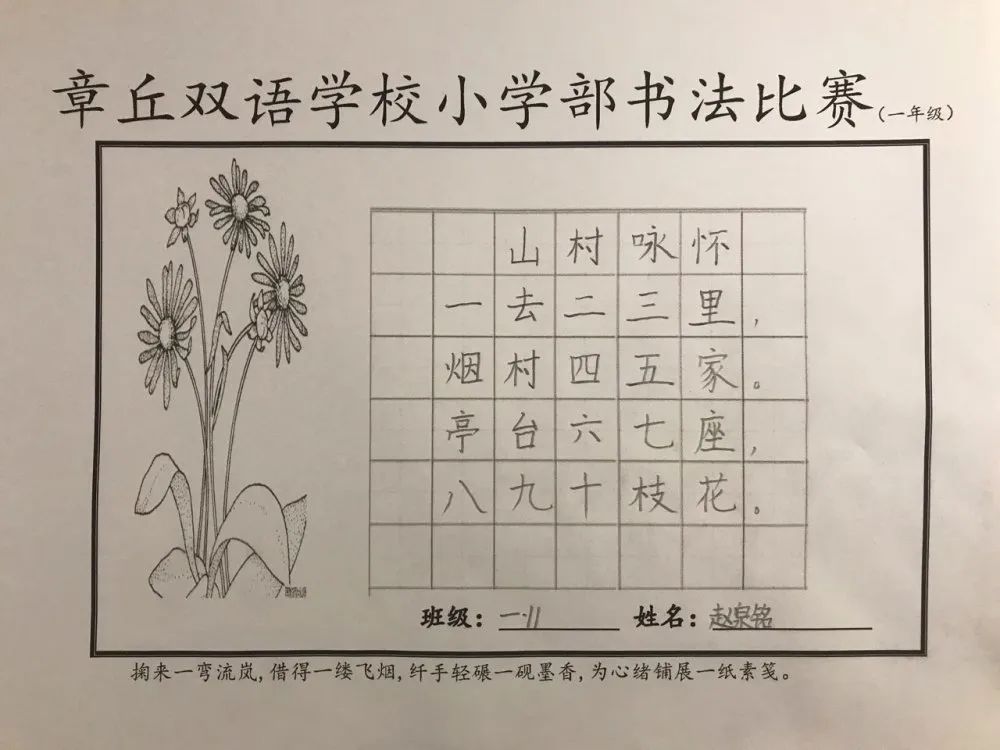 章丘双语学校小学部书法比赛(一年级)
山村咏怀
一去二三里,
烟村四五家。
亭台六七座,
八九十枝花。
班级: 一·11 姓名: 赵泉铭
掬来一弯流岚,借得一缕飞烟,纤手轻碾一砚墨香,为心绪铺展一纸素笺。